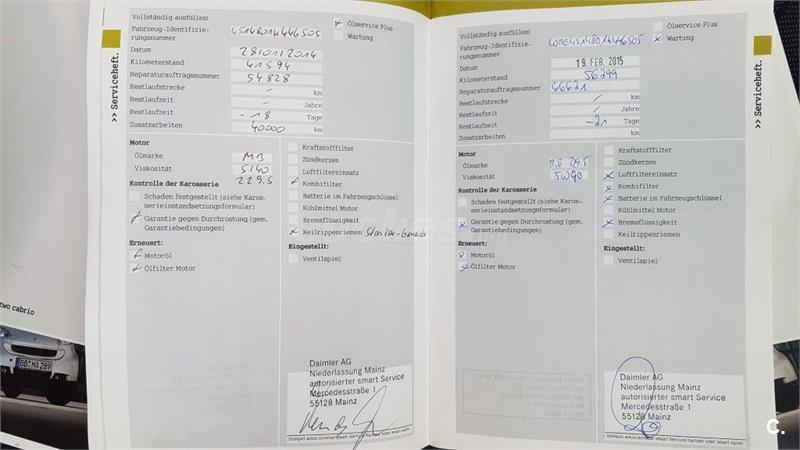 Vollständig ausfüllen!
Fahrzeug-Identifizie-
rungsnummer
Datum 28/01/2014
Kilometerstand 41594
Reparaturauftragsnummer 54828
Restlaufstrecke / km
Restlaufzeit / Jahre
Restlaufzeit -18 Tage
Zusatzarbeiten 40000 km
Ölservice Plus
Wartung
>> Serviceheft.
Motor
Ölmarke MB
Viskosität 5/40
229.5
Kontrolle der Karosserie
Schaden festgestellt (siehe Karos-
serieinstandsetzungsformular)
Garantie gegen Durchrostung (gem.
Garantiebedingungen)
Erneuert:
Motoröl
Ölfilter Motor
Kraftstofffilter
Zündkerzen
Luftfiltereinsatz
Kombifilter
Batterie im Fahrzeugschlüssel
Kühlmittel Motor
Bremsflüssigkeit
Keilrippenriemen
Eingestellt:
Ventilspiel
Daimler AG
Niederlassung Mainz
autorisierter smart Service
Mercedesstraße 1
55128 Mainz
two cabrio
BB MA 289
Vollständig ausfüllen!
Fahrzeug-Identifizie-
rungsnummer
Datum 19. FEB. 2015
Kilometerstand 56799
Reparaturauftragsnummer 46621
Restlaufstrecke / km
Restlaufzeit / Jahre
Restlaufzeit -21 Tage
Zusatzarbeiten km
Ölservice Plus
Wartung
>> Serviceheft.
Motor
Ölmarke
Viskosität
Kontrolle der Karosserie
Schaden festgestellt (siehe Karos-
serieinstandsetzungsformular)
Garantie gegen Durchrostung (gem.
Garantiebedingungen)
Erneuert:
Motoröl
Ölfilter Motor
Kraftstofffilter
Zündkerzen
Luftfiltereinsatz
Kombifilter
Batterie im Fahrzeugschlüssel
Kühlmittel Motor
Bremsflüssigkeit
Keilrippenriemen
Eingestellt:
Ventilspiel
Daimler AG
Niederlassung Mainz
autorisierter smart Service
Mercedesstraße 1
55128 Mainz
C.